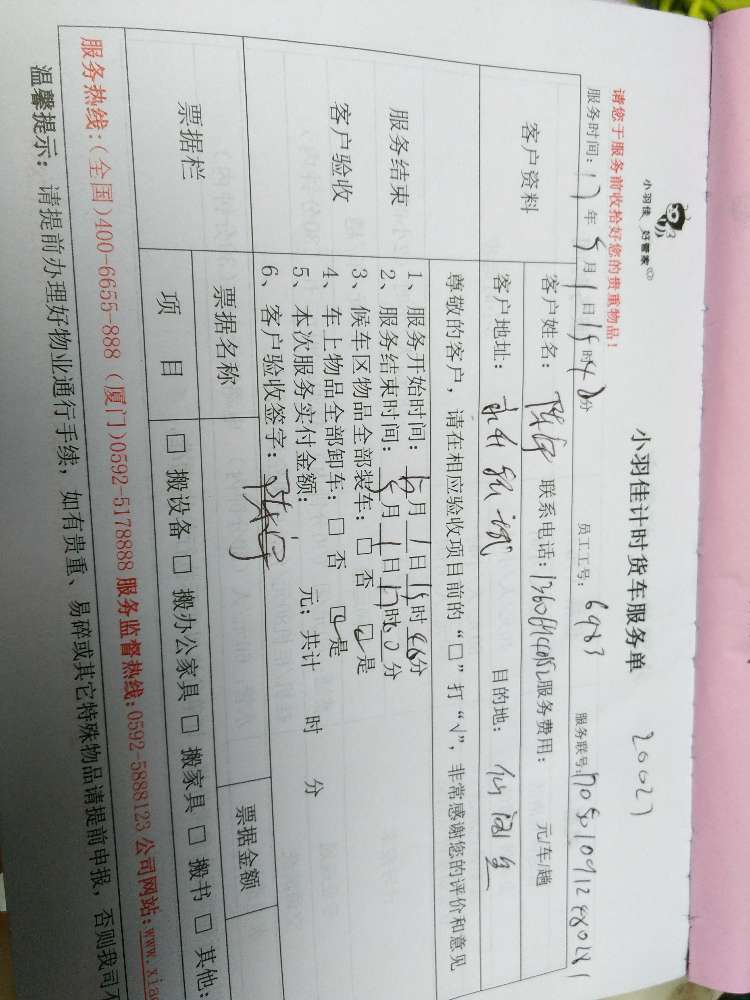 小羽佳 好管家
小羽佳计时货车服务单 20027
请您于服务前收拾好您的贵重物品！
服务时间：17年5月1日15时40分 员工工号：6983 服务联号：
客户资料 客户姓名： 联系电话： 服务费用： 元/车/趟
客户地址： 目的地：
服务结束
客户验收
尊敬的客户，请在相应验收项目前的“□”打“√”，非常感谢您的评价和意见
1、服务开始时间：5月1日15时46分
2、服务结束时间：5月1日17时0分
3、候车区物品全部装车：□ 否 是
4、车上物品全部卸车：□ 否 是
5、本次服务实付金额： 元；共计 时 分
6、客户验收签字：
票据栏 票据名称 票据金额
项 目 □ 搬设备 □ 搬办公家具 □ 搬家具 □ 搬书 □ 其他:
服务热线:(全国)400-6655-888 (厦门)0592-5178888 服务监督热线:0592-5888123 公司网站:www.xia
温馨提示：请提前办理好物业通行手续，如有贵重、易碎或其它特殊物品请提前申报，否则我司不